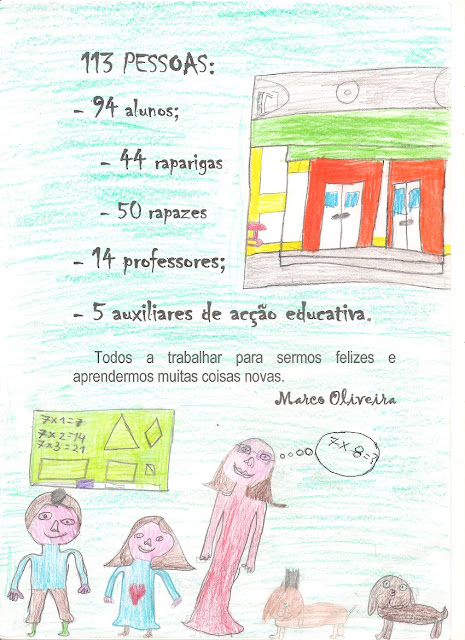 113 PESSOAS:
- 94 alunos;
- 44 raparigas
- 50 rapazes
- 14 professores;
- 5 auxiliares de acção educativa.
Todos a trabalhar para sermos felizes e
aprendermos muitas coisas novas.
Marco Oliveira
7x1=7
7x2=14
7x3=21
7x8=?